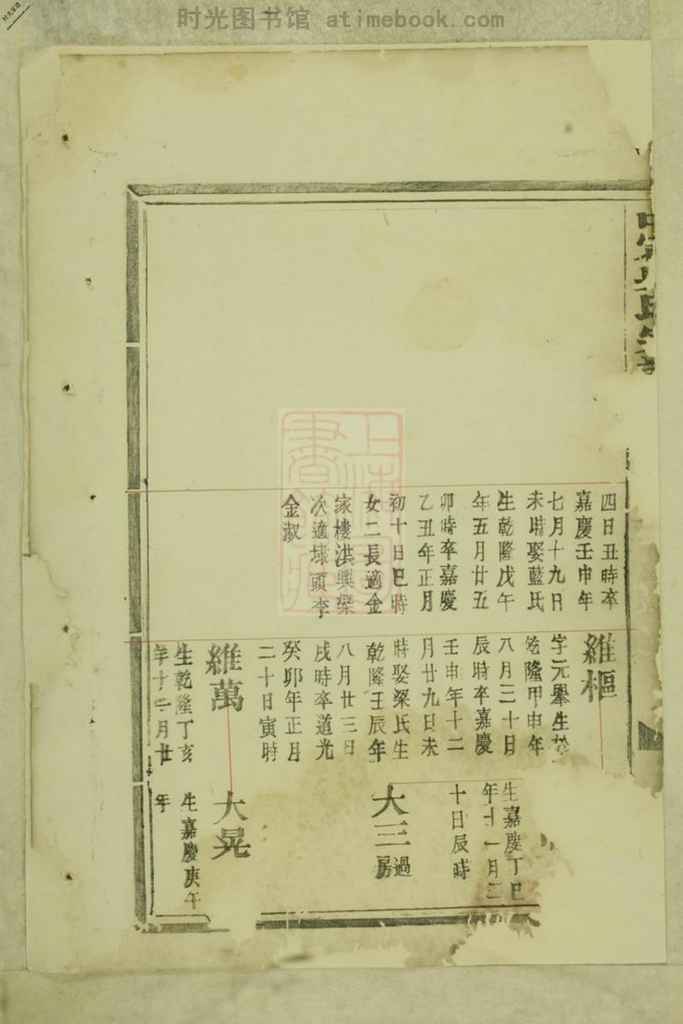 时光图书馆 atimebook.com
四日丑時卒
嘉慶壬申年
七月十九日
未時娶藍氏
生乾隆戊午
年五月廿五
卯時卒嘉慶
乙丑年正月
初十日巳時
女二長適金
家樓洪興榮
次適球頭李
金淑
維樞
字元舉生
乾隆甲申年
八月三十日
辰時卒嘉慶
壬申年十二
月廿九日未
時娶梁氏生
乾隆壬辰年
八月廿三日
戌時卒道光
癸卯年正月
二十日寅時
維萬
生乾隆丁亥
年十二月廿
生嘉慶丁巳
年十一月二
十日辰時
大三
過房
大晃
生嘉慶庚午
年